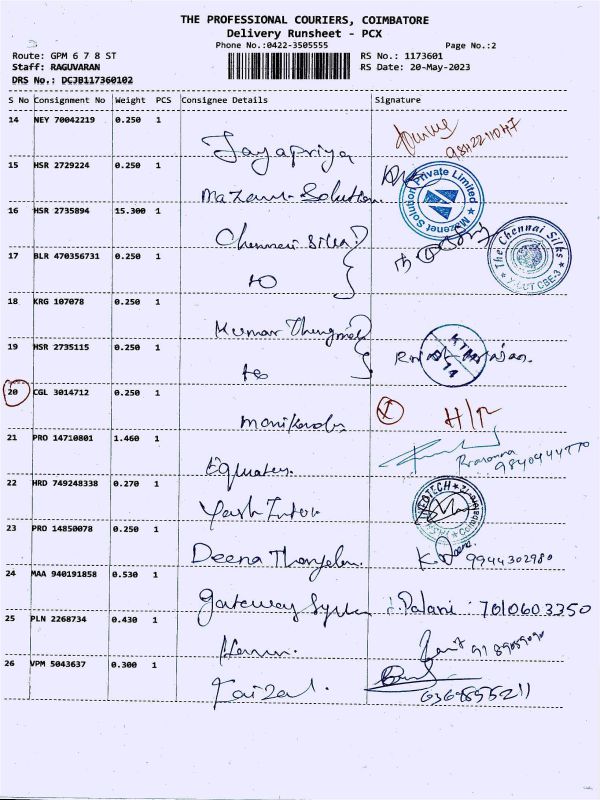 THE PROFESSIONAL COURIERS, COIMBATORE
Delivery Runsheet - PCX
Phone No.:0422-3505555 Page No.:2
Route: GPM 6 7 8 ST RS No.: 1173601
Staff: RAGUVARAN RS Date: 20-May-2023
DRS No.: DCJB117360102
S No Consignment No Weight PCS Consignee Details Signature
14 NEY 70042219 0.250 1
Jayapriya
15 HSR 2729224 0.250 1
Solution
Mazenet Solution Private Limited
16 HSR 2735894 15.300 1
Chennai Silks
The Chennai Silks
CBE-3
17 BLR 470356731 0.250 1
18 KRG 107078 0.250 1
Kumar
19 HSR 2735115 0.250 1
KTM
14
20 CGL 3014712 0.250 1
21 PRO 14710801 1.460 1
Prasanna
9840944770
22 HRD 749248338 0.270 1
Yash
23 PRO 14850078 0.250 1
Deena
9944302980
24 MAA 940191858 0.530 1
Gateway
Palani: 7010603350
25 PLN 2268734 0.430 1
26 VPM 5043637 0.300 1
Faizal.